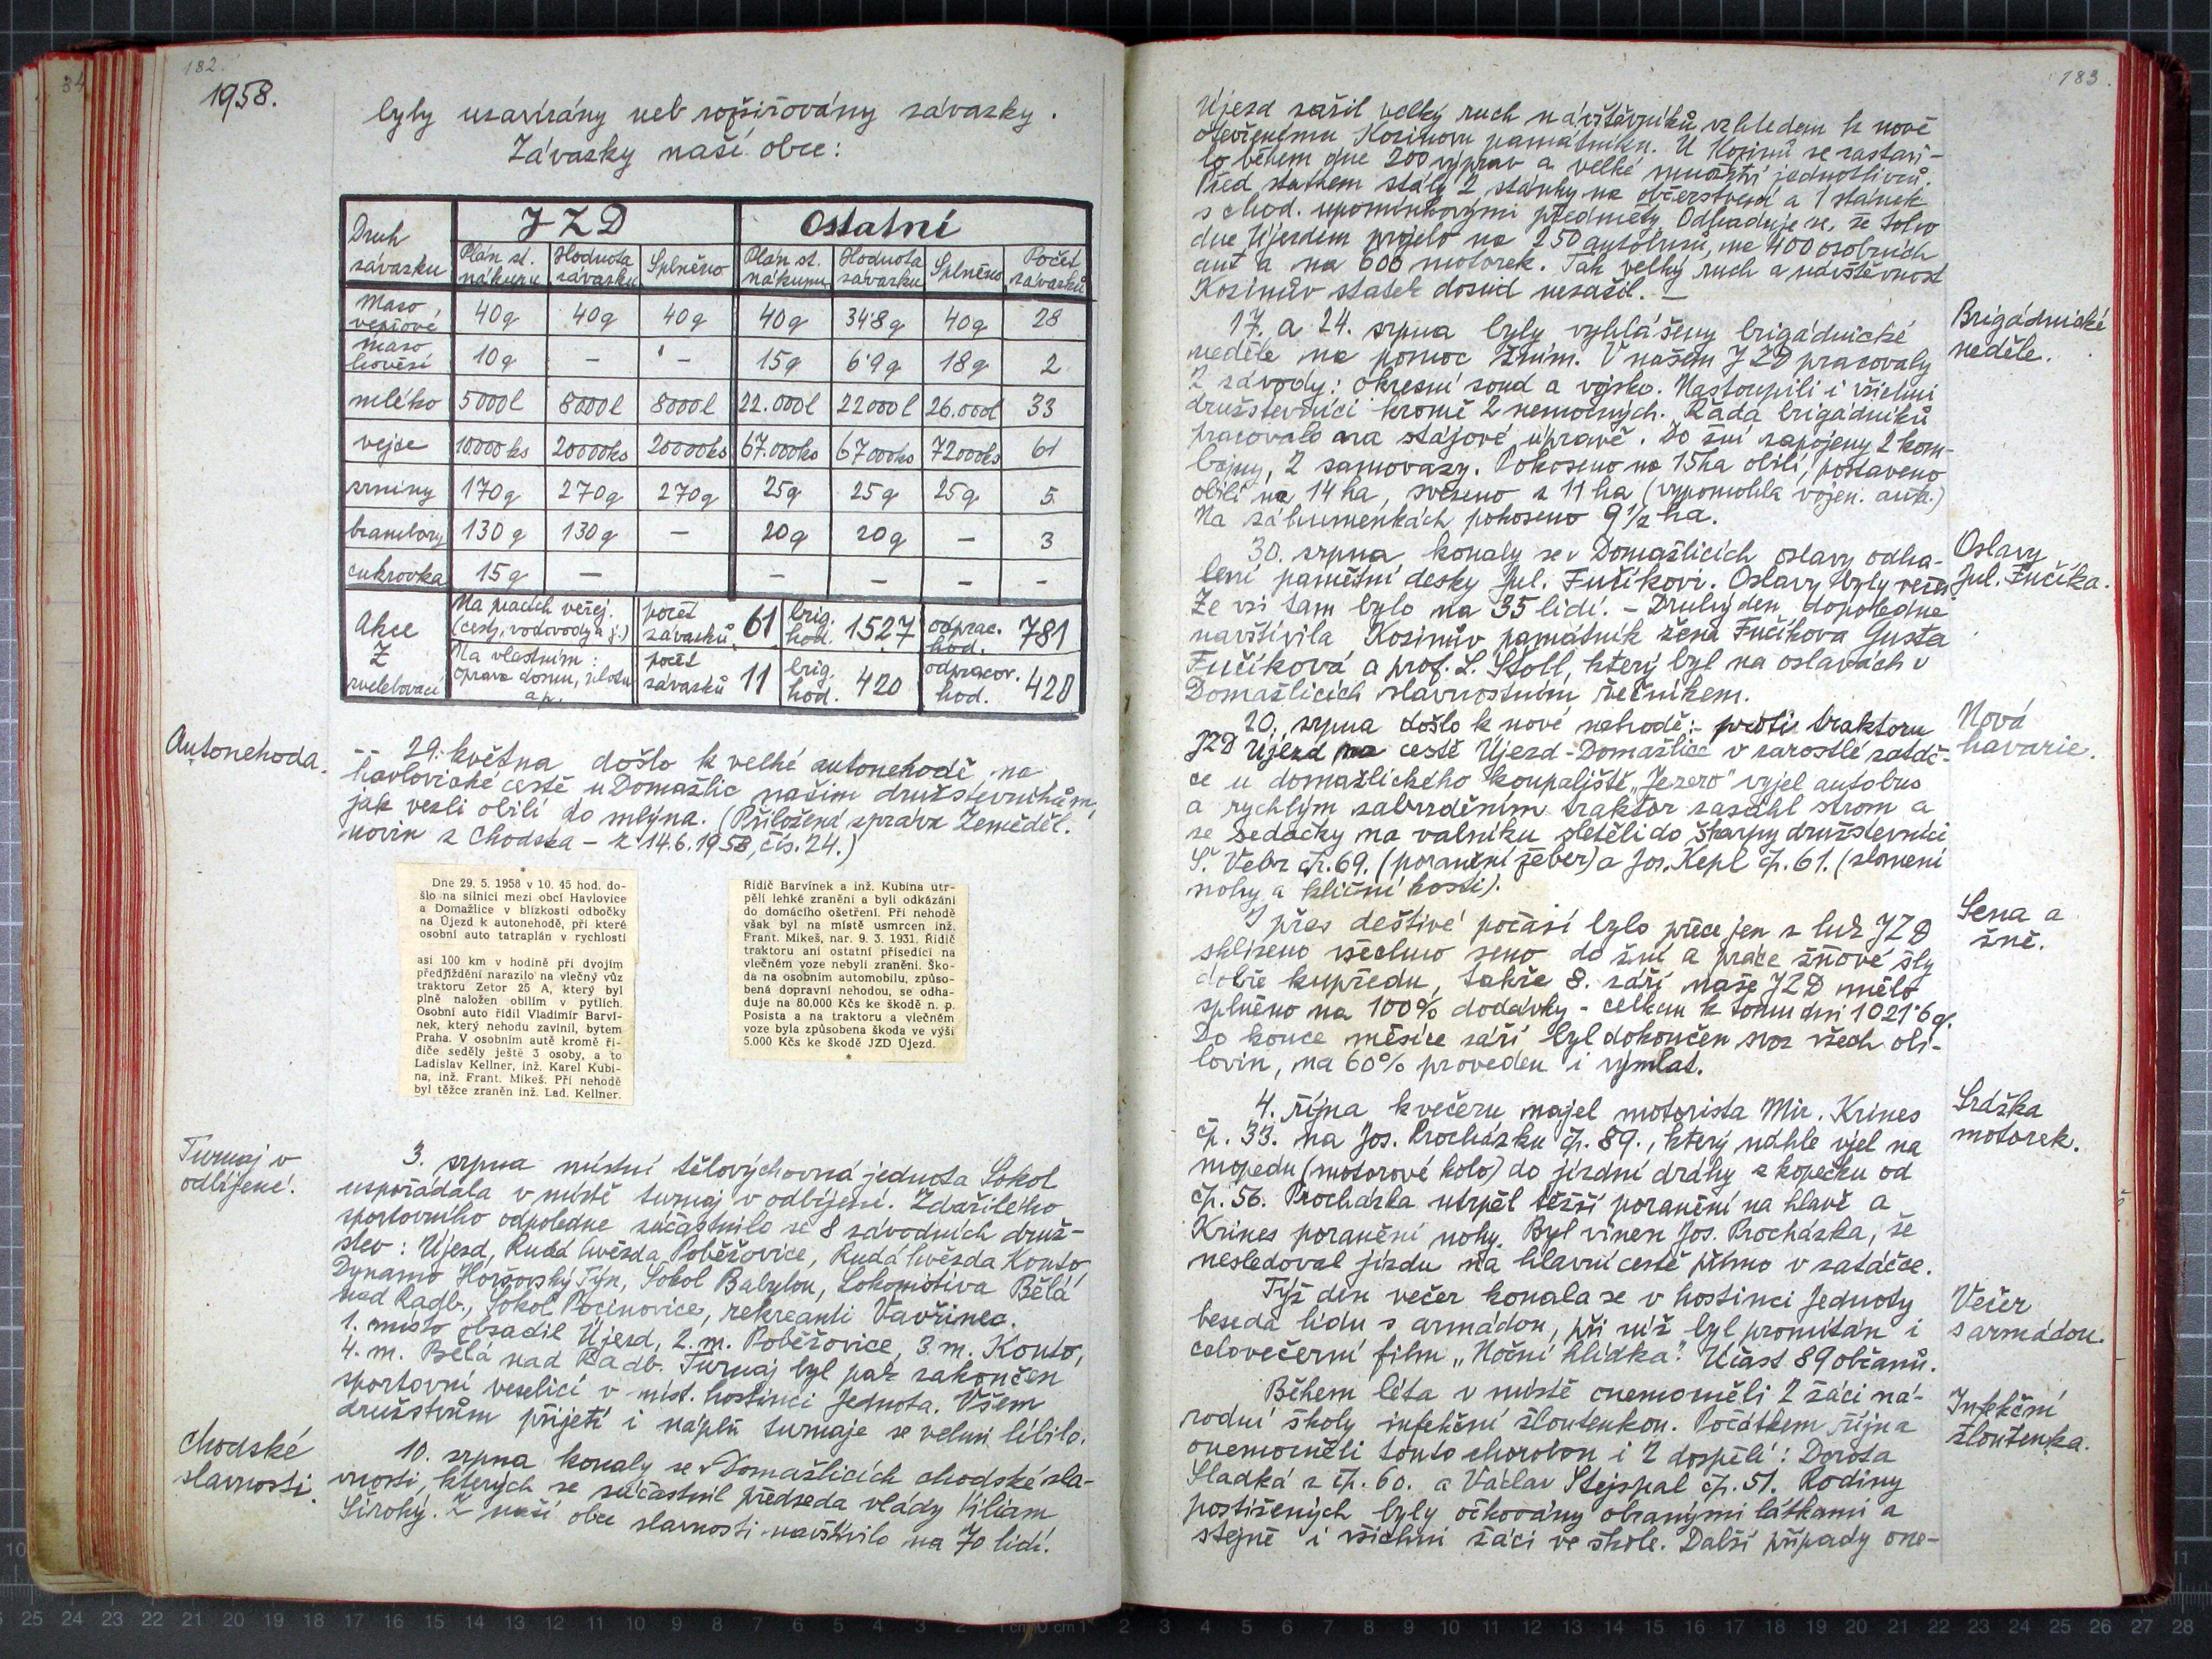 182.
1958.
byly uzavírány neb rozšiřovány závazky.
Závazky naší obce:
Druh závazku | JZD | Ostatní
Plán st. nákupu | Hodnota závazku | Splněno | Plán st. nákupu | Hodnota závazku | Splněno | Počet závazků
maso vepřové | 40q | 40q | 40q | 40q | 34'8q | 40q | 28
maso hovězí | 10q | – | – | 15q | 6'9q | 18q | 2
mléko | 5000l | 8000l | 8000l | 22.000l | 22000l | 26.000l | 33
vejce | 10.000ks | 20000ks | 20000ks | 67.000ks | 67000ks | 72000ks | 61
zrniny | 170q | 270q | 270q | 25q | 25q | 25q | 5
brambory | 130q | 130q | – | 20q | 20q | – | 3
cukrovka | 15q | – | – | – | – | –
Akce Z zvelebovací | Na pracích veřej. (cesty, vodovody a j.) | počet závazků 61 | brig. hod. 1527 | odprac. hod. 781
Na vlastním: oprava domu, plotu ap. | počet závazků 11 | brig. hod. 420 | odpracov. hod. 420
Autonehoda.
29. května došlo k velké autonehodě na
havlovické cestě u Domažlic našim družstevníkům,
jak vezli obilí do mlýna. (Přiložena zpráva Zeměděl.
novin z Chodska – z 14.6.1958, čís. 24.)
Dne 29. 5. 1958 v 10. 45 hod. do-
šlo na silnici mezi obcí Havlovice
a Domažlice v blízkosti odbočky
na Újezd k autonehodě, při které
osobní auto tatraplán v rychlosti
asi 100 km v hodině při dvojím
předjíždění narazilo na vlečný vůz
traktoru Zetor 25 A, který byl
plně naložen obilím v pytlích.
Osobní auto řídil Vladimír Barví-
nek, který nehodu zavinil, bytem
Praha. V osobním autě kromě ři-
diče seděly ještě 3 osoby, a to
Ladislav Kellner, inž. Karel Kubi-
na, inž. Frant. Mikeš. Při nehodě
byl těžce zraněn inž. Lad. Kellner.
Řidič Barvínek a inž. Kubina utr-
pěli lehké zranění a byli odkázáni
do domácího ošetření. Při nehodě
však byl na místě usmrcen inž.
Frant. Mikeš, nar. 9. 3. 1931. Řidič
traktoru ani ostatní přísedící na
vlečném voze nebyli zraněni. Ško-
da na osobním automobilu, způso-
bená dopravní nehodou, se odha-
duje na 80.000 Kčs ke škodě n. p.
Posista a na traktoru a vlečném
voze byla způsobena škoda ve výši
5.000 Kčs ke škodě JZD Újezd.
Turnaj v
odbíjené.
3. srpna místní tělovýchovná jednota Sokol
uspořádala v místě turnaj v odbíjení. Zdařilého
sportovního odpoledne súčastnilo se 8 závodních druž-
stev: Újezd, Rudá hvězda Poběžovice, Rudá hvězda Kouto,
Dynamo Horšovský Týn, Sokol Babylon, Lokomotiva Bělá
nad Radb., Sokol Pocinovice, rekreanti Vavřinec.
1. místo obsadil Újezd, 2. m. Poběžovice, 3. m. Kouto,
4. m. Bělá nad Radb. Turnaj byl pak zakončen
sportovní veselicí v míst. hostinci Jednota. Všem
družstvům přijetí i náplň turnaje se velmi líbilo.
Chodské
slavnosti.
10. srpna konaly se v Domažlicích chodské sla-
vnosti, kterých se súčastnil předseda vlády Viliam
Široký. Z naší obce slavnosti navštívilo na 70 lidí.
183.
Újezd zažil velký ruch návštěvníků vzhledem k nově
otevřenému Kozinovu památníku. U Kozinů se zastavi-
lo během dne 200 výprav a velké množství jednotlivců.
Před statkem stály 2 stánky na občerstvení a 1 stánek
s chod. upomínkovými předměty. Odhaduje se, že toho
dne Újezdem projelo na 250 autobusů, na 400 osobních
aut a na 600 motorek. Tak velký ruch a návštěvnost
Kozinův statek dosud nezažil. –
Brigádnické
neděle.
17. a 24. srpna byly vyhlášeny brigádnické
neděle na pomoc žním. V našem JZD pracovaly
2 závody: okresní soud a vojsko. Nastoupili i všichni
družstevníci kromě 2 nemocných. Řada brigádníků
pracovalo na stájové úpravě. Do žní zapojeny 2 kom-
bajny, 2 samovazy. Pokoseno na 15ha obilí, postaveno
obilí na 14 ha, svezeno z 11 ha (vypomohla vojen. auta.)
Na záhumenkách pokoseno 9½ ha.
Oslavy
Jul. Fučíka.
30. srpna konaly se v Domažlicích oslavy odha-
lení pamětní desky Jul. Fučíkovi. Oslavy byly večer.
Ze vsi tam bylo na 35 lidí. – Druhý den dopoledne
navštívila Kozinův památník žena Fučíkova Gusta
Fučíková a prof. L. Štoll, který byl na oslavách v
Domažlicích slavnostním řečníkem.
Nová
havarie.
20. srpna došlo k nové nehodě: – proti traktoru
JZD Újezd na cestě Újezd-Domažlice v zarostlé zatáč-
ce u domažlického koupaliště „Jezero" vyjel autobus
a rychlým zabrzděním traktor zasáhl strom a
se sedačky na valníku sletěli do škarpy družstevníci
Š. Vebr čp. 69. (poranění žeber) a Jos. Kepl čp. 61. (zlomení
nohy a klíční kosti).
Sena a
žně.
I přes deštivé počasí bylo přece jen z luk JZD
sklizeno všechno seno do žní a práce žňové šly
dobře kupředu, takže 8. září naše JZD mělo
splněno na 100% dodávky - celkem k tomu dni 1021'6 q.
Do konce měsíce září byl dokončen svoz všech obi-
lovin, na 60% proveden i výmlat.
Srážka
motorek.
4. října k večeru najel motorista Mir. Krines
čp. 33. na Jos. Procházku čp. 89., který náhle vjel na
mopedu (motorové kolo) do jízdní dráhy z kopečku od
čp. 56. Procházka utrpěl těžší poranění na hlavě a
Krines poranění nohy. Byl vinen Jos. Procházka, že
nesledoval jízdu na hlavní cestě přímo v zatáčce.
Večer
s armádou.
Týž den večer konala se v hostinci Jednoty
beseda lidu s armádou, při níž byl promítán i
celovečerní film „Noční hlídka". Účast 89 občanů.
Infekční
žloutenka.
Během léta v místě onemocněli 2 žáci ná-
rodní školy infekční žloutenkou. Počátkem října
onemocněli touto chorobou i 2 dospělí: Dorota
Sladká z čp. 60. a Václav Stejspal čp. 51. Rodiny
postižených byly očkovány obrannými látkami a
stejně i všichni žáci ve škole. Další případy one-